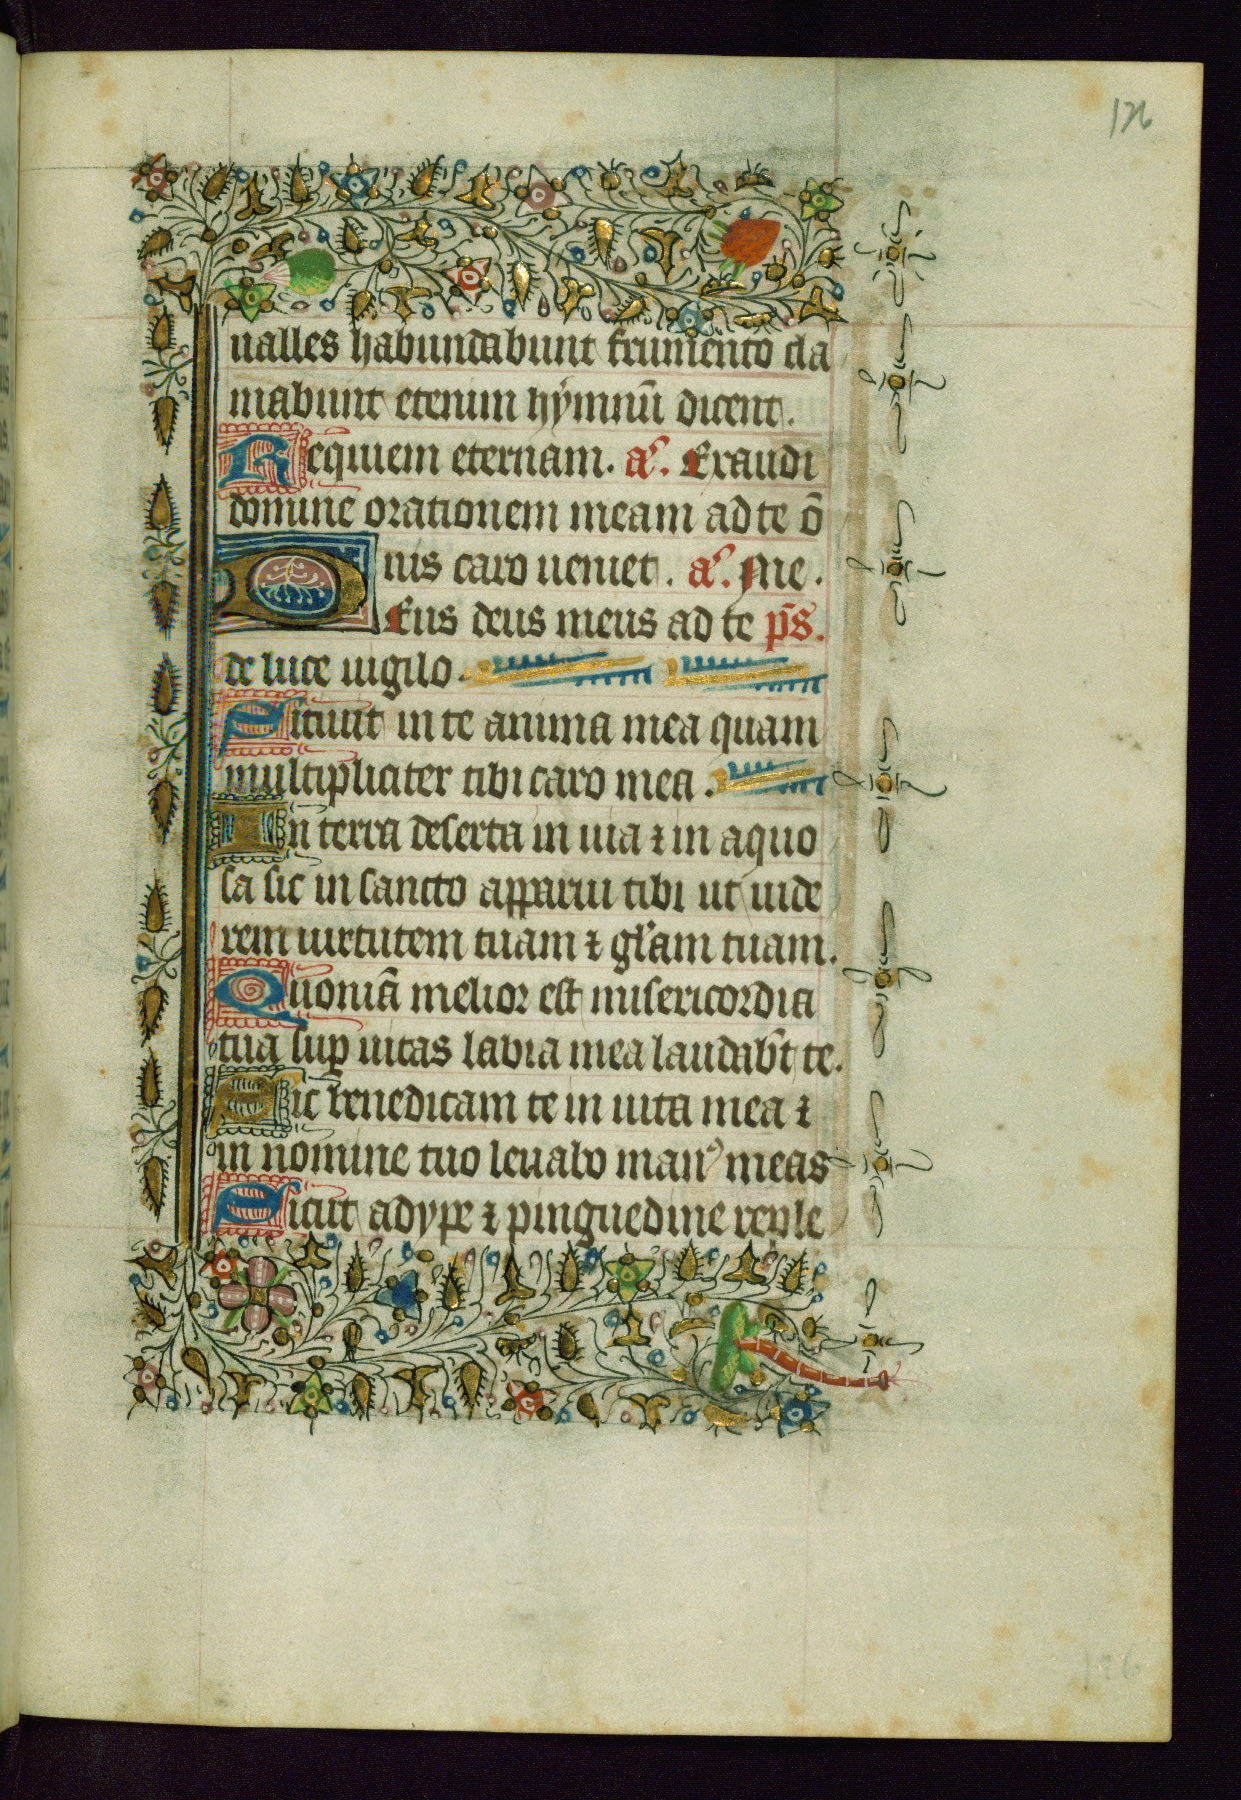 126
ualles habundabunt frumento cla
mabunt etenim hẏmnū dicent.
Requiem eternam. aͥ. Exaudi
domine orationem meam ad te ō
nis caro ueniet. a. Me.
Deus deus meus ad te ps̄.
de luce uigilo.
Sitiuit in te anima mea quam
multipliciter tibi caro mea.
In terra deserta in uia ⁊ in aquo
sa sic in sancto apparui tibi ut uide
rem uirtutem tuam ⁊ gl'am tuam.
Quoniā melior est misericordia
tua suꝑ uitas labia mea laudab̄t te.
Sic benedicam te in uita mea ⁊
in nomine tuo leuabo manꝰ meas
Sicut adype ⁊ pinguedine reple
126